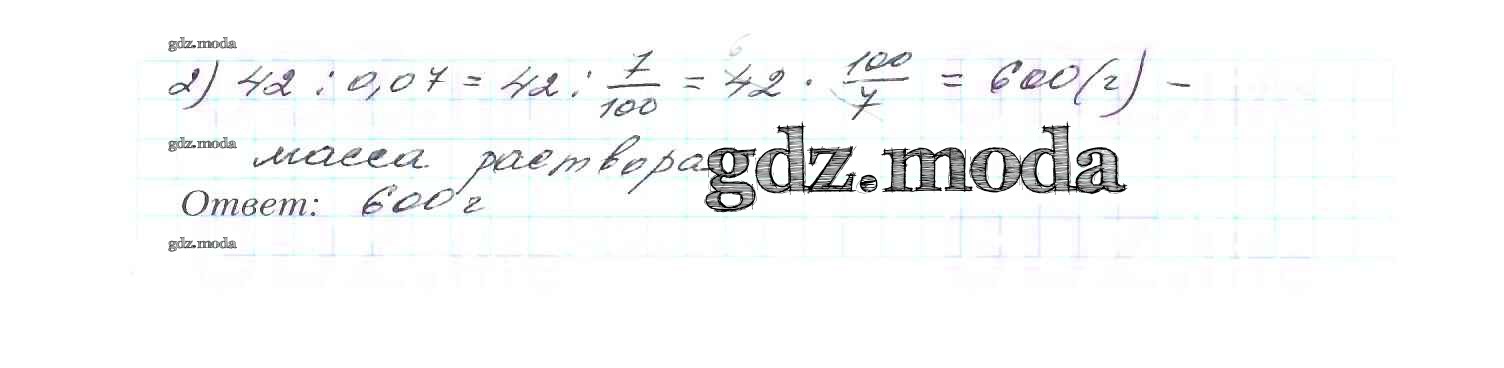 gdz.moda
2) 42 : 0,07 = 42 : 7/100 = 42 · 100/7 = 600 (г) –
gdz.moda
масса раствора
gdz.moda
Ответ: 600 г
gdz.moda